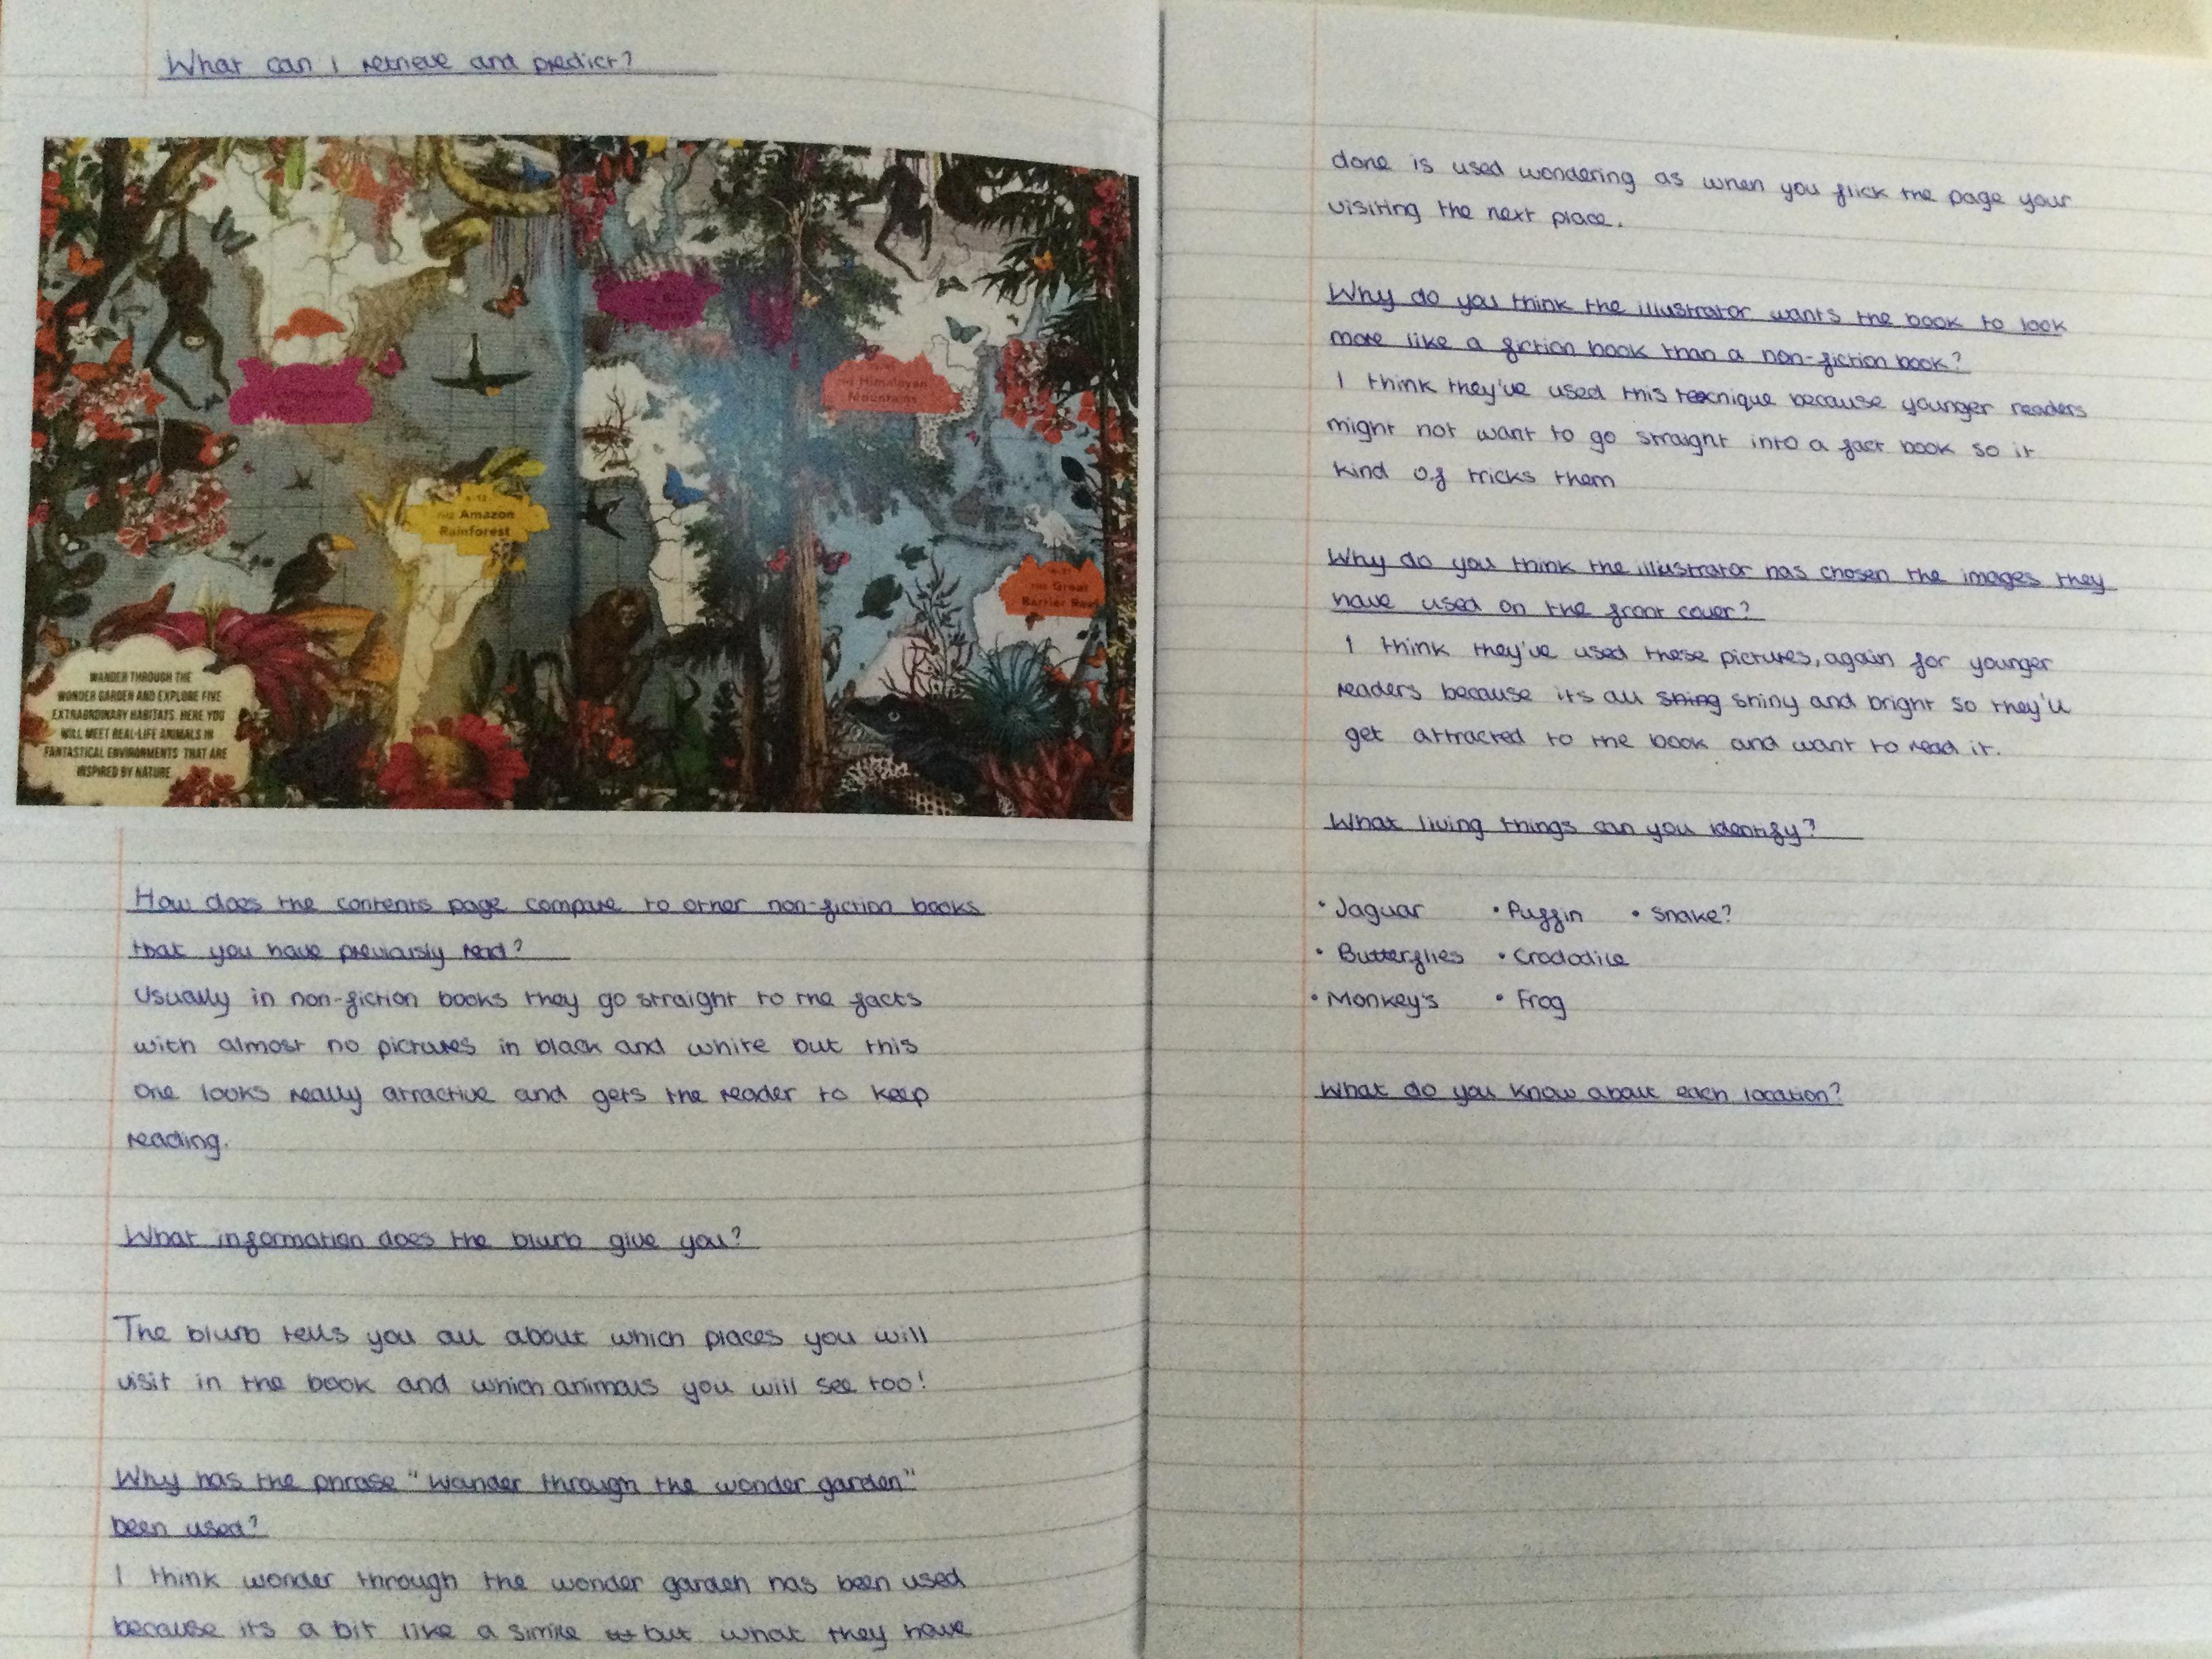 What can I retrieve and predict?
THE Himalayan
Mountains
THE Amazon
Rainforest
THE Great
Barrier Reef
WANDER THROUGH THE
WONDER GARDEN AND EXPLORE FIVE
EXTRAORDINARY HABITATS. HERE YOU
WILL MEET REAL-LIFE ANIMALS IN
FANTASTICAL ENVIRONMENTS THAT ARE
INSPIRED BY NATURE
How does the contents page compare to other non-fiction books
that you have previously read?
Usually in non-fiction books they go straight to the facts
with almost no pictures in black and white but this
one looks really attractive and gets the reader to keep
reading.
What information does the blurb give you?
The blurb tells you all about which places you will
visit in the book and which animals you will see too!
Why has the phrase "wander through the wonder garden"
been used?
I think wonder through the wonder garden has been used
because its a bit like a simile but what they have
done is used wondering as when you flick the page your
visiting the next place.
Why do you think the illustrator wants the book to look
more like a fiction book than a non-fiction book?
I think they've used this tecnique because younger readers
might not want to go straight into a fact book so it
kind of tricks them
Why do you think the illustrator has chosen the images they
have used on the front cover?
I think they've used these pictures, again for younger
readers because its all shing shiny and bright so they'll
get attracted to the book and want to read it.
What living things can you identify?
• Jaguar • Puffin • Snake?
• Butterflies • Crododile
• Monkey's • Frog
What do you know about each location?